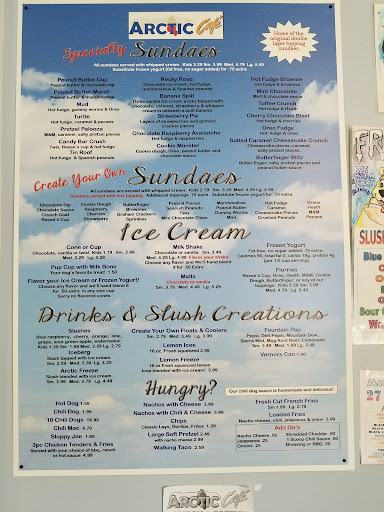 ARCTIC Café
Specialty Sundaes
Home of the
original double
layer topping
sundaes.
All sundaes served with whipped cream. Kids 3.29 Sm. 3.99 Med. 4.79 Lg. 5.59
Substitute frozen yogurt (fat free, no sugar added) for .75 extra
Peanut Butter Cup
Peanut butter & chocolate dip
Peanut Butter Marsh
Mud
Hot fudge, gummy worms & Oreo
Turtle
Hot fudge, caramel & pecans
Pretzel Palooza
M&M, caramel, salty pretzel pieces
Candy Bar Crush
Twix, Reese's cup & hot fudge
Tin Roof
Hot fudge & Spanish peanuts
Rocky Road
Chocolate ice cream, hot fudge,
marshmallow & Spanish peanuts
Banana Split
Three vanilla ice cream peaks topped with
chocolate, caramel, strawberry & whipped
cream in between a split banana
Strawberry Pie
Layers of strawberries and graham
cracker pieces
Chocolate Raspberry Avalanche
Hot fudge & raspberries
Cookie Monster
Cookie dough, Oreo, peanut butter
and chocolate sauce
Hot Fudge Brownie
Hot fudge & brownie
Mint Chocolate
Mint & chocolate sauce
Toffee Crunch
Hot fudge & Heath
Cherry Chocolate Blast
Hot fudge & cherries
Oreo Fudge
Hot fudge & Oreo
Salted Caramel Cheesecake Crunch
Cheesecake pieces, caramel,
salty pretzel pieces
Butterfinger Blitz
Butter finger, salty pretzel pieces and
peanut butter sauce
Create Your Own Sundaes
All sundaes are served with whipped cream. Kids 2.79 Sm. 3.29 Med. 4.29 Lg. 4.99
Sundaes served with one topping. Additional toppings .75 each. Substitute frozen yogurt for .75 extra.
Chocolate Dip
Chocolate Sauce
Crunch Coat
Reese's Cup
Cookie Dough
Raspberry
Cherries
Strawberry
Butterfinger
Brownies
Graham Crackers
Sprinkles
Pretzel Pieces
Spanish Peanuts
Twix
Mini Chocolate Chips
Marshmallow
Peanut Butter
Gummy Worms
Mint
Hot Fudge
Caramel
Cheesecake Pieces
Crushed Peanuts
Oreo
Heath
M&M
Pecans
Ice Cream
Cone or Cup
Chocolate, vanilla or twist Kids 1.79 Sm. 2.49
Med. 3.29 Lg. 3.99
Pup Cup with Milk Bone
Your dog's favorite treat! 1.50
Flavor your Ice Cream or Frozen Yogurt!
Choose any flavor and we'll blend it
for .50 extra in any size cup
Sorry no flavored cones
Milk Shake
Chocolate or vanilla. Sm. 3.49
Med. 4.29 Lg. 4.99 Flavor your shake!
Choose any flavor and We'll hand blend
it for .50 Extra
Malts
Chocolate or vanilla
Sm. 3.79 Med. 4.49 Lg. 5.29
Frozen Yogurt
Fat free, no sugar added .75 extra
Calories 90, total fat 0, carbs 19g, protein 4g
(per 1/2 cup serving)
Flurries
Reese's Cup, Oreo, Heath, M&M, Cookie
Dough, Butterfinger, or any of our
toppings! Kids 3.29 Sm. 3.99
Med. 4.79 Lg. 5.49
Drinks & Slush Creations
Slushes
Blue raspberry, cherry, orange, lime,
grape, sour green apple, watermelon
Kids 1.39 Sm. 1.69 Med. 2.29 Lg. 2.79
Iceberg
Slush topped with ice cream
Sm. 2.59 Med. 3.39 Lg. 4.29
Arctic Freeze
Slush blended with ice cream
Sm. 2.99 Med. 3.79 Lg. 4.69
Create Your Own Floats & Coolers
Sm. 2.79 Med. 3.49 Lg. 3.99
Lemon Ice
16 oz. Fresh squeezed 2.99
Lemon Freeze
16 oz fresh squeezed lemon
Ice blended with ice cream 3.99
Fountain Pop
Pepsi, Diet Pepsi, Mountain Dew,
Sierra Mist, Mug Root Beer, Lemonade
Sm. 1.49 Med. 1.99 Lg. 2.49
Vernors Can 1.00
Hungry?
Our chili dog sauce is homemade and delicious!
Hot Dog 1.59
Chili Dog 1.99
10 Chili Dogs 16.95
Chili Mac 4.79
Sloppy Joe 1.99
3pc Chicken Tenders & Fries
Served with your choice of bbq, ranch
or hot sauce 4.99
Nachos with Cheese 2.99
Nachos with Chili & Cheese 3.99
Chips
Classic Lays, Doritos, Fritos 1.29
Large Soft Pretzel 2.49
with nacho cheese 2.99
Walking Taco 2.59
Fresh Cut French Fries
Sm 1.99 Lg. 2.79
Loaded Fries
Nacho cheese, chili, jalapenos & onion 3.99
Add On's
Nacho Cheese .50
Jalapenos .25
Onions .25
Shredded Cheddar .50
1 Scoop Chili Sauce .50
Dressing or BBQ .50
ARCTIC Café
FR
SLUS
Blue
Sour
27